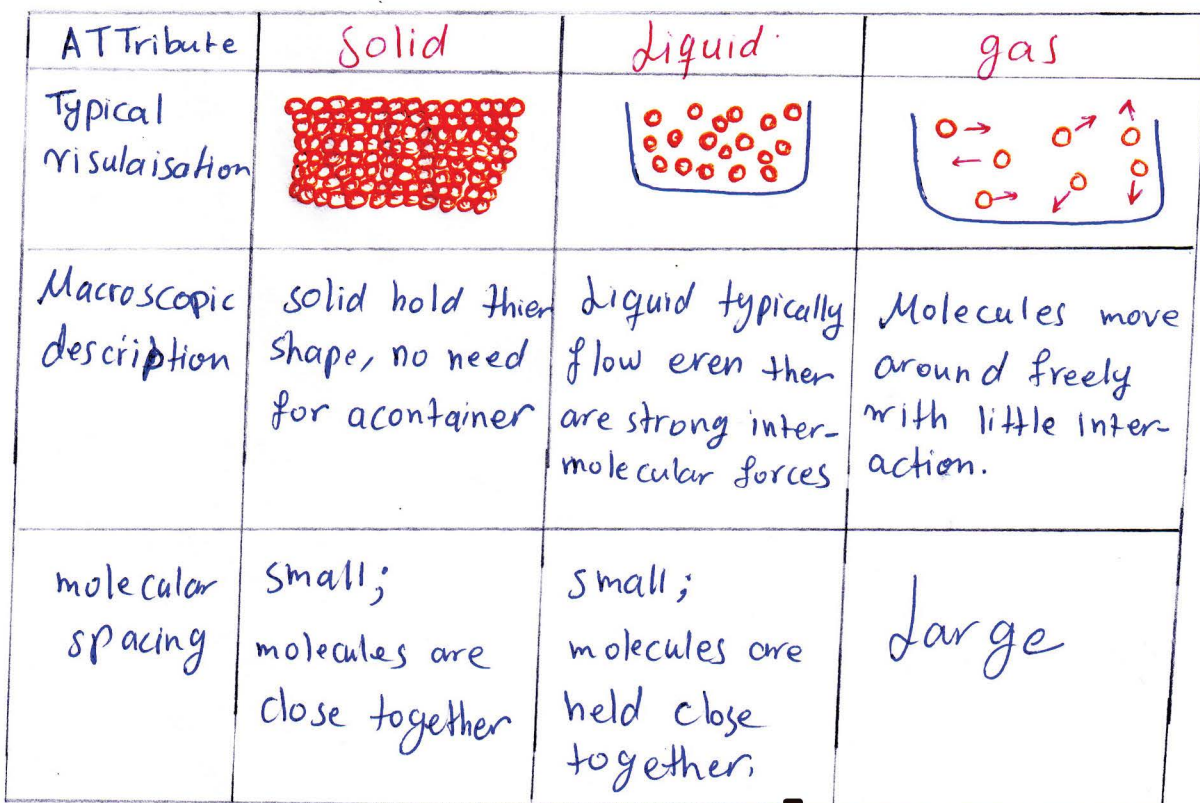 ATTribute
Solid
Liquid
gas
Typical
visulaisation
Macroscopic
description
solid hold thier
shape, no need
for acontainer
Liquid typically
flow even ther
are strong inter-
molecular forces
Molecules move
around freely
with little inter-
action.
molecular
spacing
small;
molecules are
close together
small;
molecules are
held close
together.
Large